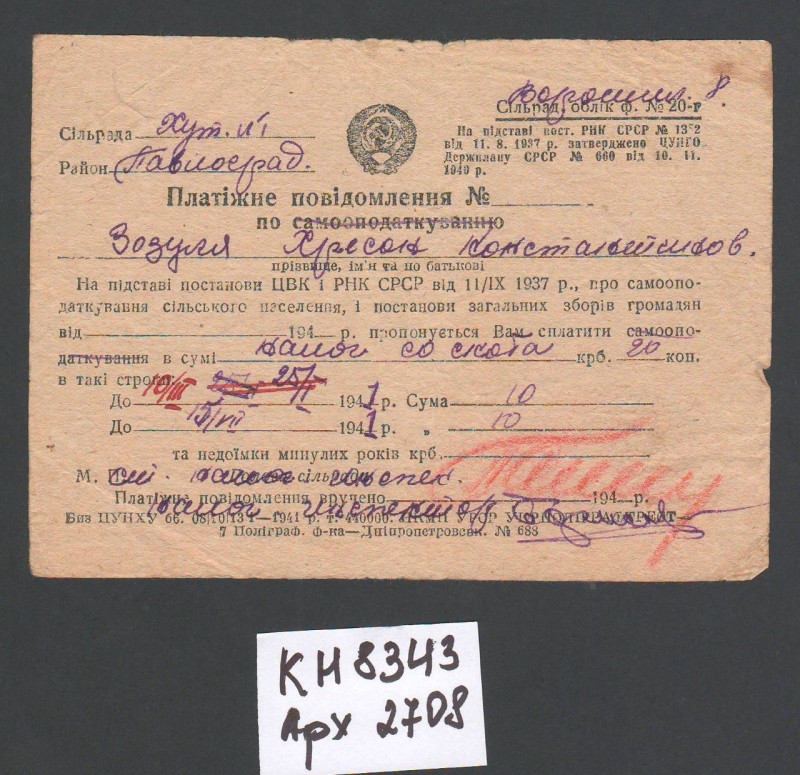 Ворошил. 8.
Сільрад. облік ф. № 20-г
На підставі пост. РНК СРСР № 13 2
від 11. 8. 1937 р. затверджено ЦУНГО
Держплану СРСР № 660 від 10. 11.
1940 р.
Сільрада Хут. №1
Район Павлоград.
Платіжне повідомлення №
по самооподаткуванню
Зозуля
прізвище, ім'я та по батькові
На підставі постанови ЦВК і РНК СРСР від 11/IX 1937 р., про самоопо-
даткування сільського населення, і постанови загальних зборів громадян
від 194 р. пропонується Вам сплатити самоопо-
даткування в сумі налог со скота крб. 20 коп.
в такі строки:
10/III 25/I
До 1941 р. Сума 10
15/VII
До 1941 р. „ 10
та недоїмки минулих років крб.
М. П. сільради
ст. налог инспек.
Платіжне повідомлення вручено 194 р.
налог инспектор
Биз ЦУНХУ 1941 р. т. 440000.
7 Поліграф. ф-ка—Дніпропетровськ. № 683
КН 8343
Арх 2708